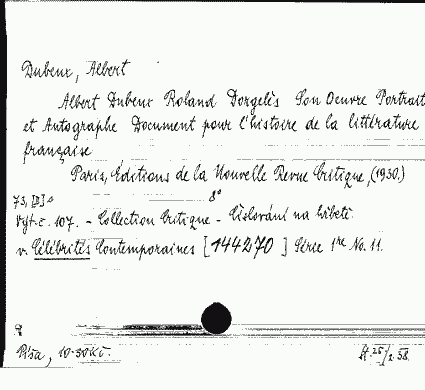 Dubeux, Albert
Albert Dubeux Roland Dorgelès Son Oeuvre Portrait
et Autographe Document pour l'histoire de la littérature
française
Paris, Éditions de la Nouvelle Revue Critique, (1930.)
73, [III] s 8°
Výt. č. 107. - Collection Critique - Číslování na hřbetě
v. Célébrités Contemporaines [144270] Série 1re No. 11.
Píša, 10.30 Kč.